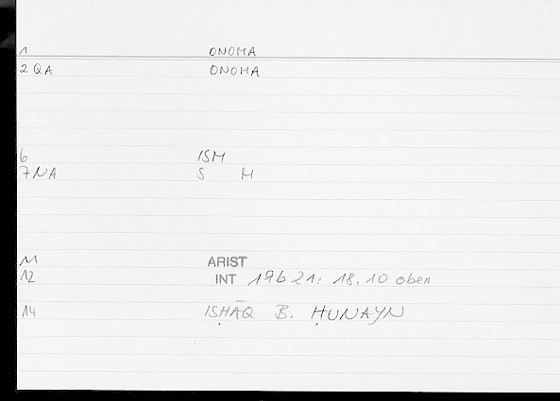 1 ONOMA
2 QA ONOMA
6 ISM
7 NA S M
11 ARIST
12 INT 19b 21: 18.10 oben
14 ISḤĀQ B. ḤUNAYN